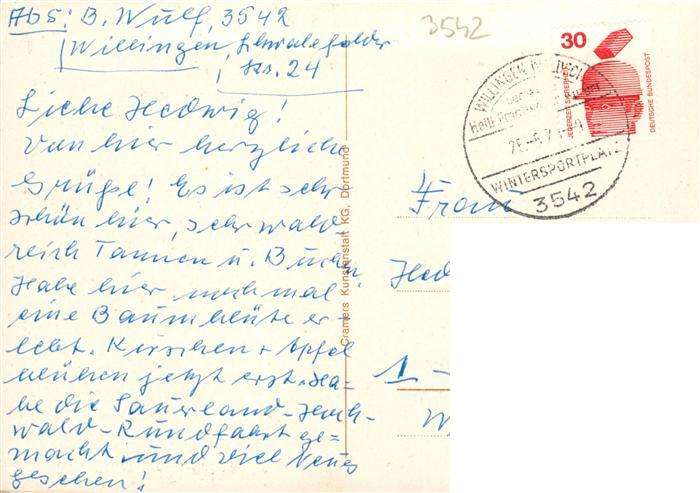 Abs: B. Wulf, 3542
Willingen, Schwalefelder
Str. 24
3542
Liebe Hedwig!
Von hier herzliche
Grüße! Es ist sehr
schön hier, sehr wald
reich Tannen u. Buchen
Habe hier noch mal
eine Baumblüte er-
lebt. Kirschen + Apfel
blühen jetzt erst. Ha-
be die Sauerland-Hoch-
wald-Rundfahrt ge=
macht und viel Neues
gesehen!
Cramers Kunstanstalt KG, Dortmund
30
JEDERZEIT SICHERHEIT
DEUTSCHE BUNDESPOST
WILLINGEN
Heil
WINTERSPORTPLATZ
3542
Frau
Hed
1-
W